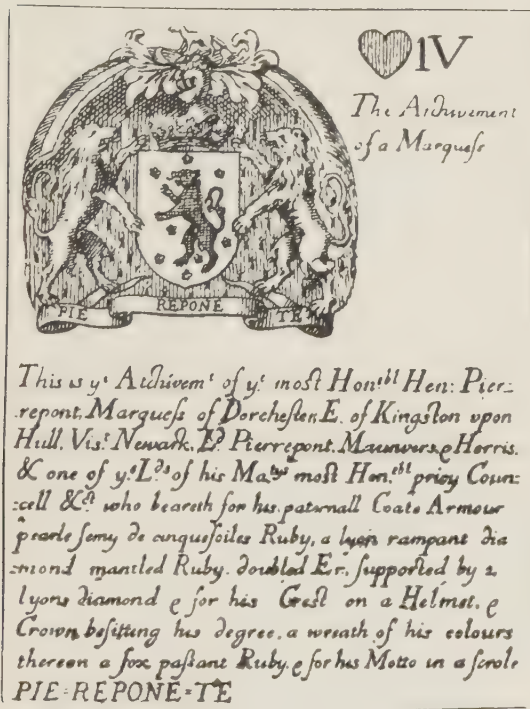 IV
The Atchivement
of a Marquess
PIE REPONE TE
This is yᵉ Atchivemᵗ of yᵉ most Honᵇˡ Hen: Pier=
repont, Marquess of Dorchester, E. of Kingston upon
Hull, Visᵗ Newark, Lᵈ Pierrepont, Maunvers, & Herris.
& one of yᵉ Lᵈˢ of his Maᵗʸˢ most Hon.ᵇˡ privy Coun=
=cell &ᶜᵗ who beareth for his paternall Coate Armour
pearle semy de cinquefoiles Ruby, a lyon rampant dia
=mond mantled Ruby. doubled Er, supported by 2
lyons diamond & for his Crest on a Helmet, &
Crown, befitting his degree, a wreath of his colours
thereon a fox passant Ruby, & for his Motto in a scrole
PIE=REPONE=TE